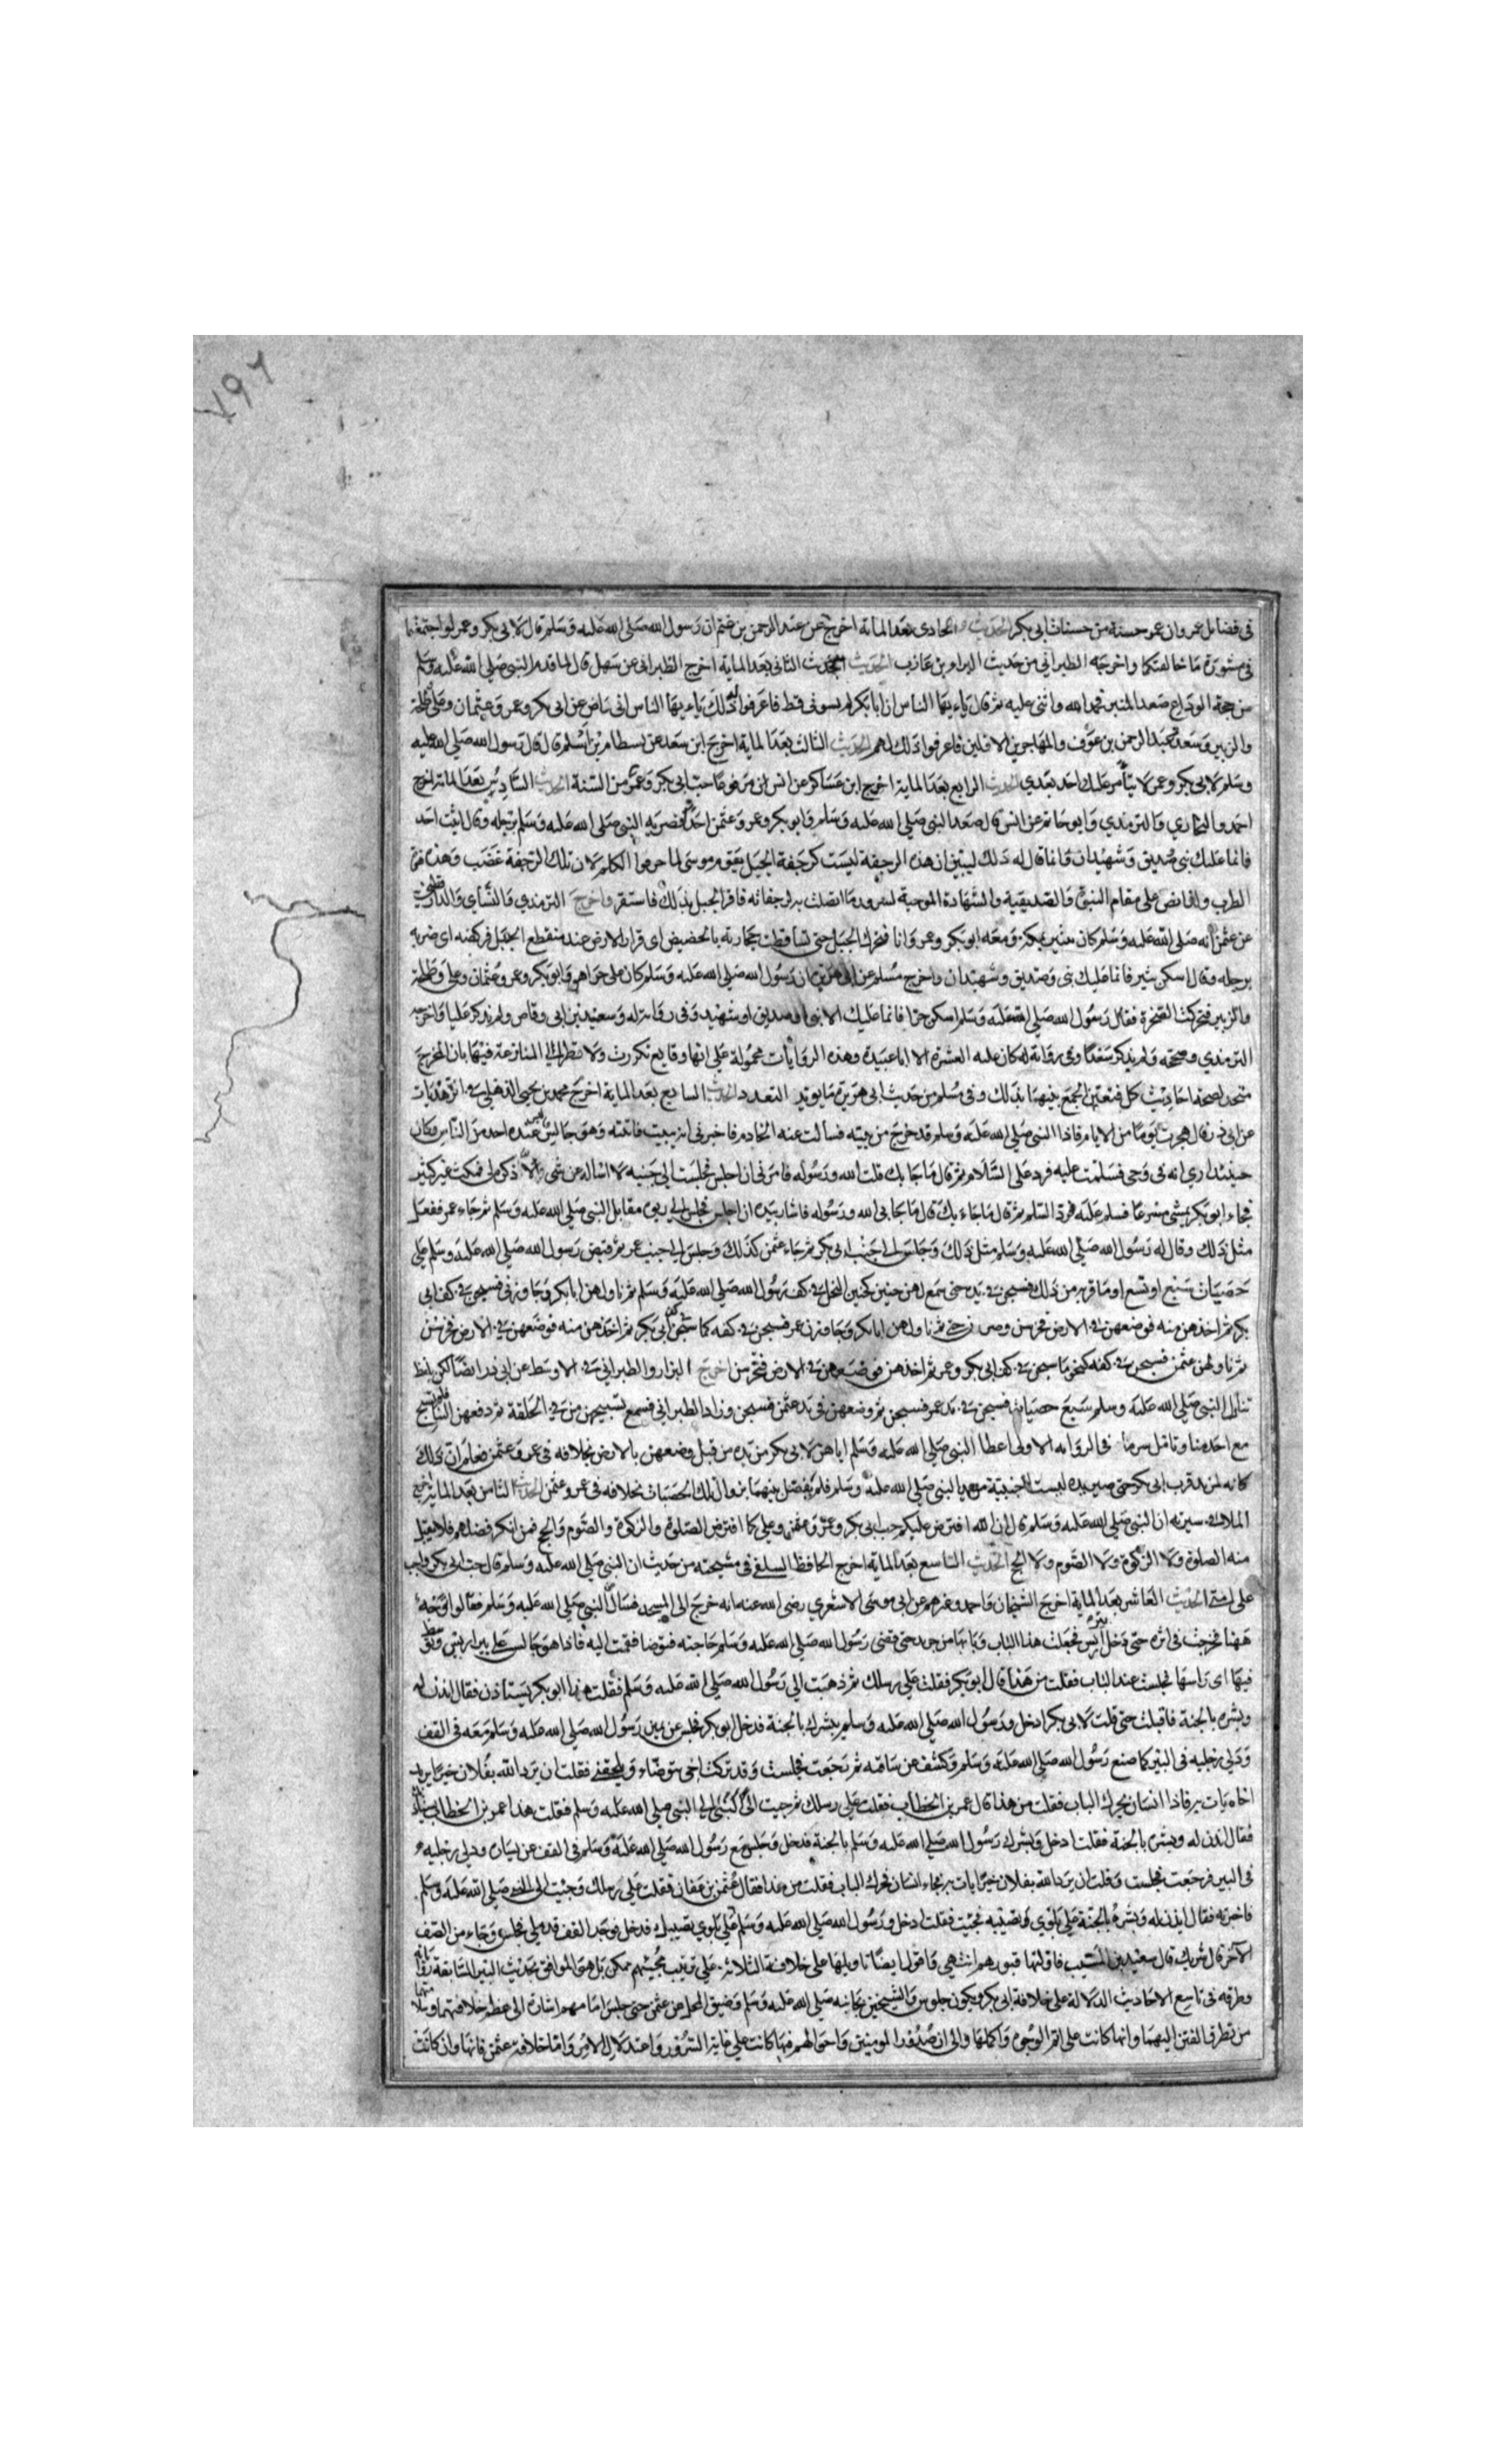 في فضايل عمر وان عمر حسنة من حسنات ابي بكر الحديث الحادي بعد الماية اخرج عن عبد الرحمن بن غنم ان رسول الله صلى الله عليه وسلم قال لابي بكر وعمر لو اجتمعتما
في مشورة ما خالفتكما واخرجه الطبراني من حديث البراء بن عازب الحديث الثاني بعد الماية اخرج الطبراني عن سهل قال لما قدم النبي صلى الله عليه وسلم
من حجة الوداع صعد المنبر فحمد الله واثنى عليه ثم قال ياءيها الناس ان ابا بكر لم يسوني قط فاعرفوا له ذلك ياءيها الناس اني راض عن ابي بكر وعمر وعثمان وعلي وطلحة
والزبير وسعد وعبد الرحمن بن عوف والمهاجرين الاولين فاعرفوا ذلك لهم الحديث الثالث بعد الماية اخرج ابن سعد عن بسطام بن اسلم قال قال رسول الله صلى الله عليه
وسلم لابي بكر وعمر لا يتامر عليكما احد بعدي الحديث الرابع بعد الماية اخرج ابن عساكر عن انس مرفوعا حب ابي بكر وعمر من السنة الحديث السادس بعد الماية اخرج
احمد والبخاري والترمذي وابو حاتم عن انس قال صعد النبي صلى الله عليه وسلم وابو بكر وعمر وعثمن احدا فضربه النبي صلى الله عليه وسلم برجله وقال اثبت احد
فانما عليك نبي وصديق وشهيدان وانما قال له ذلك ليبين ان هذه الرجفة ليست كرجفة الجبل بقوم موسى لما حرفوا الكلم لان تلك الرجفة غضب وهذه هزة
الطرب ولهذا نص على مقام النبوة والصديقية والشهادة الموجبة لسرور ما اتصلت به لرجفاته فاقر الجبل بذلك فاستقر واخرج الترمذي والنسآي والدارقطني
عن عثمن انه صلى الله عليه وسلم كان على ثبير بمكة ومعه ابو بكر وعمر وانا فتحرك الجبل حتى تساقطت حجارته بالحضيض اى قرار الارض عند منقطع الجبل فركضه اى ضربه
برجله وقال اسكن ثبير فانما عليك نبي وصديق وشهيدان واخرج مسلم عن ابي هريرة ان رسول الله صلى الله عليه وسلم كان على حرا هو وابو بكر وعمر وعثمان وعلي وطلحة
والزبير فتحركت الصخرة فقال رسول الله صلى الله عليه وسلم اسكن حرا فانما عليك الا نبي او صديق او شهيد وفي رواية له وسعيد بن ابي وقاص ولم يذكر عليا واخرجه
الترمذي وصححه ولم يذكر سعدا وفي رواية له كان عليه العشرة الا ابا عبيدة وهذه الروايات محمولة على انها وقايع تكررت ولا نظر الى المنازعة فيها بان المخرج
متحد لصحة احاديث كل فتعين الجمع بينهما بذلك وفي مسلم من حديث ابي هريرة ما يويد التعدد الحديث السابع بعد الماية اخرج محمد بن يحيى الذهلي في الزهديات
عن ابي ذر قال هجرت يوما من الايام فاذا النبي صلى الله عليه وسلم قد خرج من بيته فسالت عنه الخادم فاخبرني انه ببيت فاتيته وهو جالس ليس عنده احد من الناس وكان
حينئذ ارى انه في وحي فسلمت عليه فرد علي السلام ثم قال ما جا بك قلت الله ورسوله فامرني ان اجلس فجلست الى جنبه لا اساله عن شي ولا ذكره لي فمكث غير كثير
فجاء ابو بكر يمشي مسرعا فسلم عليه فرد السلم ثم قال ما جاء بك قال جا بي الله ورسوله فاشار بيده ان اجلس فجلس الى ربوة مقابل النبي صلى الله عليه وسلم ثم جاء عمر ففعل
مثل ذلك وقال له رسول الله صلى الله عليه وسلم مثل ذلك وجلس الى جنب ابي بكر ثم جاء عثمن كذلك وجلس الى جنب عمر ثم قبض رسول الله صلى الله عليه وسلم على
حصيات سبع او تسع او ما قرب من ذلك فسبحن في يده حتى سمع لهن حنين كحنين النحل في كف رسول الله صلى الله عليه وسلم ثم ناولهن ابا بكر وجاوزني فسبحن في كف ابي
بكر ثم اخذهن منه فوضعهن في الارض فخرسن ثم ناولهن عمر فسبحن في كفه كما سبحن في كف ابي بكر ثم اخذهن منه فوضعهن في الارض فخرسن
ثم ناولهن عثمن فسبحن في كفه كنحو ما سبحن في كف ابي بكر وعمر ثم اخذهن فوضعهن في الارض فخرسن اخرج البزار والطبراني في الاوسط عن ابي ذر ايضا لكن بلفظ
تناول النبي صلى الله عليه وسلم سبع حصيات فسبحن في يد عمر فسبحن ثم وضعهن في يد عثمن فسبحن وزاد الطبراني فسمع تسبيحهن من في الحلقة ثم دفعهن الينا فلم تسبح
مع احد منا وتامل سر ما في الرواية الاولى اعطا النبي صلى الله عليه وسلم اياهن لابي بكر من يده من قبل وضعهن بالارض بخلافه في عمر وعثمن فعلم ان ذلك
كانه لمزيد قرب ابي بكر حتى صير يده ليست اجنبية من يد النبي صلى الله عليه وسلم فلم يفصل بينهما بزوال تلك الحصيات بخلافه في عمر وعثمن الحديث الثامن بعد الماية اخرج
الملا في سيرته ان النبي صلى الله عليه وسلم قال ان الله افترض عليكم حب ابي بكر وعمر وعثمن وعلي كما افترض الصلوة والزكوة والصوم والحج فمن انكر فضلهم فلا يقبل
منه الصلوة ولا الزكوة ولا الصوم ولا الحج الحديث التاسع بعد الماية اخرج الحافظ السلفي في مشيخته من حديث ان النبي صلى الله عليه وسلم قال حب ابي بكر واجب
على امتي الحديث العاشر بعد الماية اخرج الشيخان واحمد وغيرهم عن ابي موسى الاشعري رضي الله عنه انه خرج الى المسجد فسال عن النبي صلى الله عليه وسلم فقالوا وجه
ههنا فخرجت في اثره حتى دخل بير اريس فجلست هذا الباب وبابها من جريد حتى قضى رسول الله صلى الله عليه وسلم حاجته فتوضا فقمت اليه فاذا هو جالس على بير اريس وتوسط
فيها اى راسها فجلست عند الباب فقلت من هذا قال ابو بكر فقلت على رسلك ثم ذهبت الى رسول الله صلى الله عليه وسلم فقلت هذا ابو بكر يستاذن فقال ايذن له
وبشره بالجنة فاقبلت حتى قلت لابي بكر ادخل ورسول الله صلى الله عليه وسلم يبشرك بالجنة فدخل ابو بكر فجلس عن يمين رسول الله صلى الله عليه وسلم معه في القف
ودلى رجليه في البير كما صنع رسول الله صلى الله عليه وسلم وكشف عن ساقيه ثم رجعت فجلست وقد تركت اخي يتوضاء ويلحقني فقلت ان يرد الله بفلان خيرا يريد
اخاه يات به فاذا انسان يحرك الباب فقلت من هذا قال عمر بن الخطاب فقلت على رسلك ثم جيت الى النبي صلى الله عليه وسلم فقلت هذا عمر بن الخطاب يستاذن
فقال ايذن له وبشره بالجنة فقلت ادخل وبشرك رسول الله صلى الله عليه وسلم بالجنة فدخل وجلس مع رسول الله صلى الله عليه وسلم في القف عن يساره ودلى رجليه
في البير فرجعت فجلست وقلت ان يرد الله بفلان خيرا يات به فجاء انسان فحرك الباب فقلت من هذا فقال عثمن بن عفان فقلت على رسلك وجيت الى النبي صلى الله عليه وسلم
فاخبرته فقال ايذن له وبشره بالجنة على بلوى تصيبه فجيت فقلت ادخل ورسول الله صلى الله عليه وسلم على بلوى تصيبك فدخل فوجد القف قد ملي فجلس وجاه من الصف
الآخر قال شريك قال سعيد بن المسيب فاولتها قبورهم انتهى واقول ايضا تاويلها على خلافة الثلاثة على ترتيب مجيئهم ممكن بل هو الموافق لحديث البير السابقة
وطرقه في تاسع الاحاديث الدلالة على خلافة ابي بكر ويكون جلوس الشيخين بجانبه صلى الله عليه وسلم وضيق المحل عن عثمن حتى جلس امامهم اشارة الى عظم خلافتهما وسلامتها
من تطرق الفتن اليهما وانها كانت على اتم الوجوه واكملها والى ان صدور المومنين واحوالهم فيها كانت على غاية السرور واعتدال الامر واما خلافة عثمن فانها وان كانت